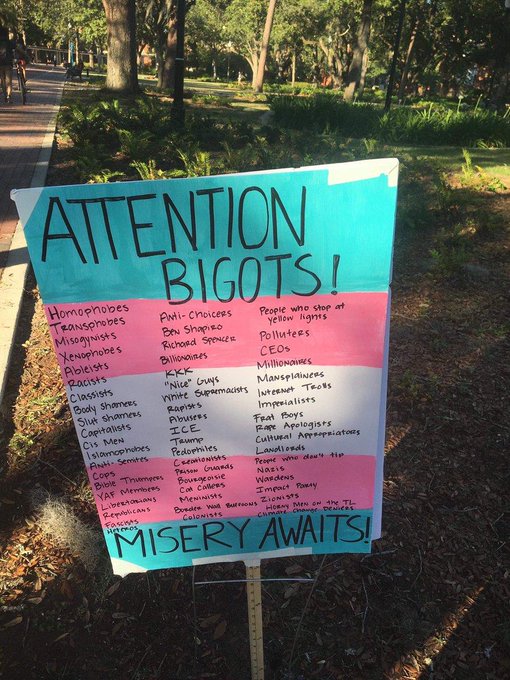 ATTENTION
BIGOTS!
Homophobes
Transphobes
Misogynists
Xenophobes
Ableists
Racists
Classists
Body Shamers
Slut Shamers
Capitalists
Cis Men
Islamophobes
Anti-Semites
Cops
Bible Thumpers
YAF Members
Libertarians
Republicans
Fascists
Heteros
Anti-Choicers
Ben Shapiro
Richard Spencer
Billionaires
KKK
"Nice" Guys
White Supremacists
Rapists
Abusers
ICE
Trump
Pedophiles
Creationists
Prison Guards
Bourgeoisie
Cat Callers
Meninists
Border Wall Buffoons
Colonists
People who stop at
yellow lights
Polluters
CEOs
Millionaires
Mansplainers
Internet Trolls
Imperialists
Frat Boys
Rape Apologists
Cultural Appropriators
Landlords
People who don't tip
Nazis
Wardens
Impact Party
Zionists
Horny Men on the TL
Climate Change Deniers
MISERY AWAITS!